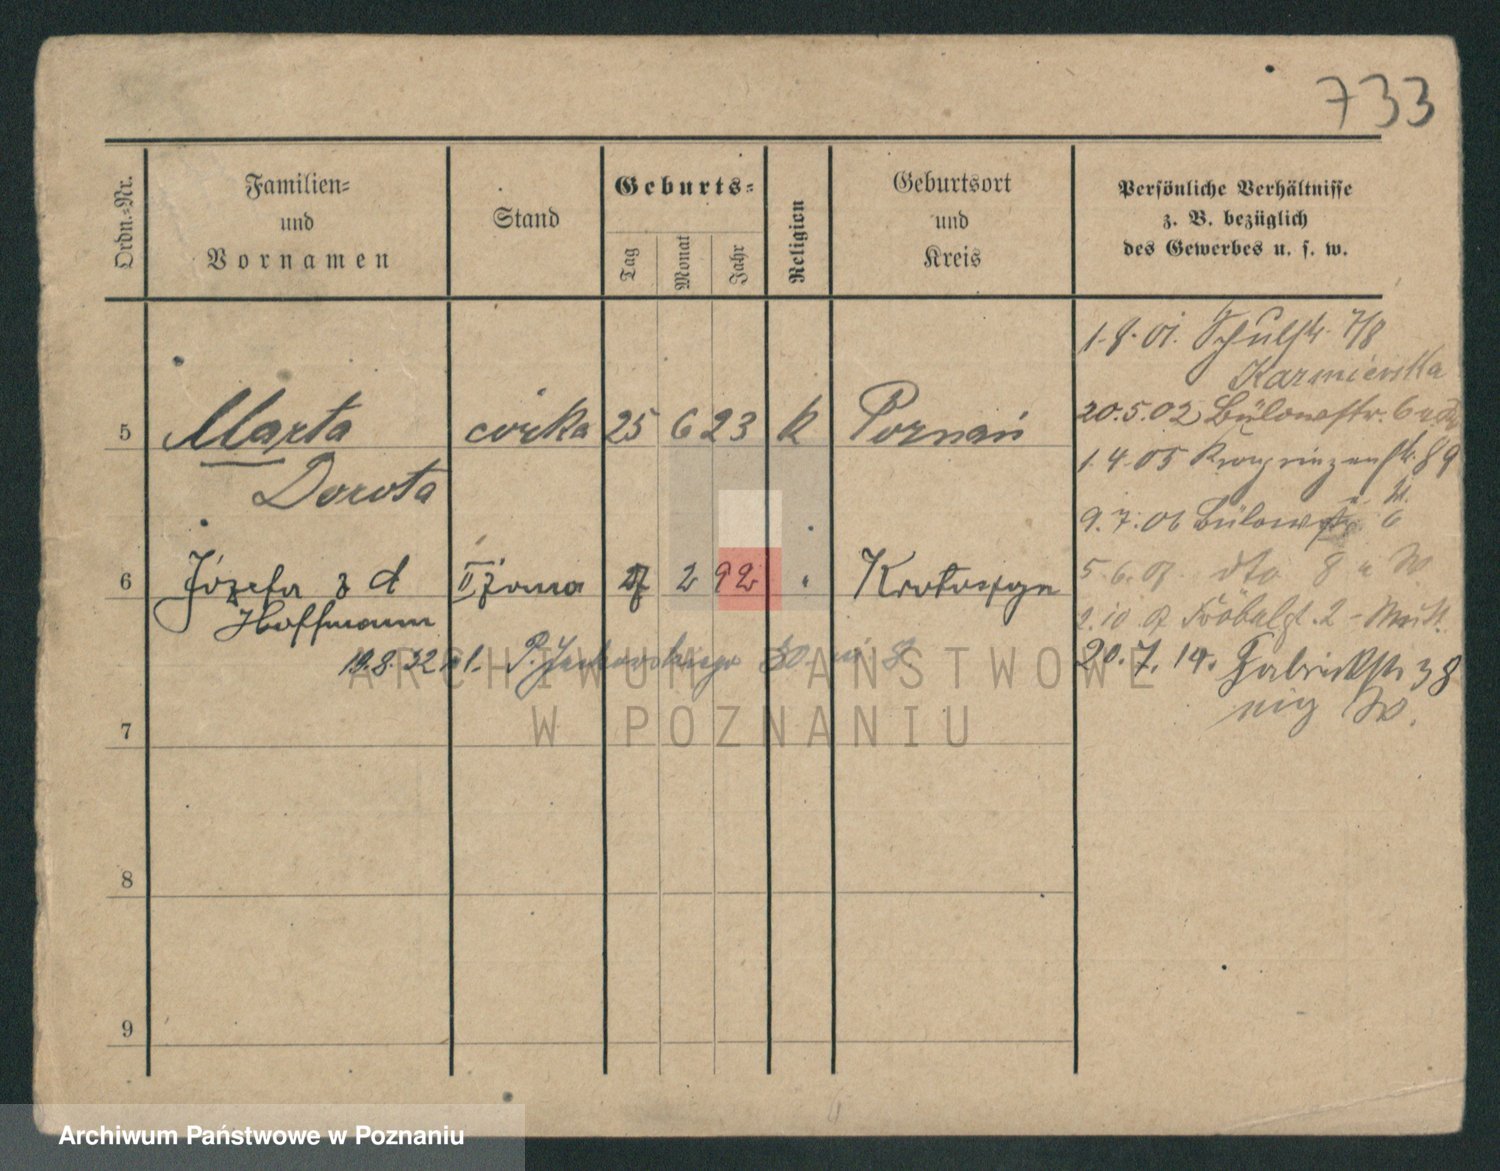 733
Ordn.-Nr.
Familien-
und
Vornamen
Stand
Geburts-
Tag
Monat
Jahr
Religion
Geburtsort
und
Kreis
Persönliche Verhältnisse
z. B. bezüglich
des Gewerbes u. s. w.
1.8.01. Schulstr. 7/8
Kazmierska
20.5.02 Bülowstr. 6
5 Marta córka 25 6 23 k Poznań
1.4.05 Kronprinzenstr. 89
Dorota
9.7.06 Bülowstr. 6
6 Józefa z d II żona 2 92 " Krotoszyn
5.6.07 dto 8 a W
Hoffmann
2.10. Fröbelst. 2 - Mutt.
19.8.32 ul. P. Jackowskiego 30
20.7.14. Fabrikstr 38
W.
ARCHIWUM PAŃSTWOWE
W POZNANIU
7
8
9
Archiwum Państwowe w Poznaniu